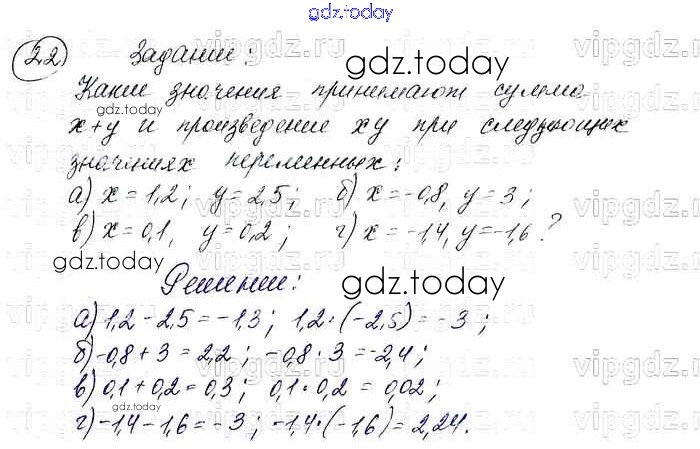 gdz.today
22) Задание:
gdz.today
Какие значения принимают сумма
gdz.today
x+y и произведение xy при следующих
значениях переменных:
а) x=1,2; y=2,5; б) x=-0,8, y=3;
в) x=0,1, y=0,2; г) x=-1,4, y=-1,6?
gdz.today
Решение:
gdz.today
а) 1,2-2,5=-1,3; 1,2·(-2,5)=-3;
б) -0,8+3=2,2; -0,8·3=-2,4;
в) 0,1+0,2=0,3; 0,1·0,2=0,02;
gdz.today
г) -1,4-1,6=-3; -1,4·(-1,6)=2,24.
vipgdz.ru
vipgdz.ru
vipgdz.ru
vipgdz.ru
vipgdz.ru
vipgdz.ru